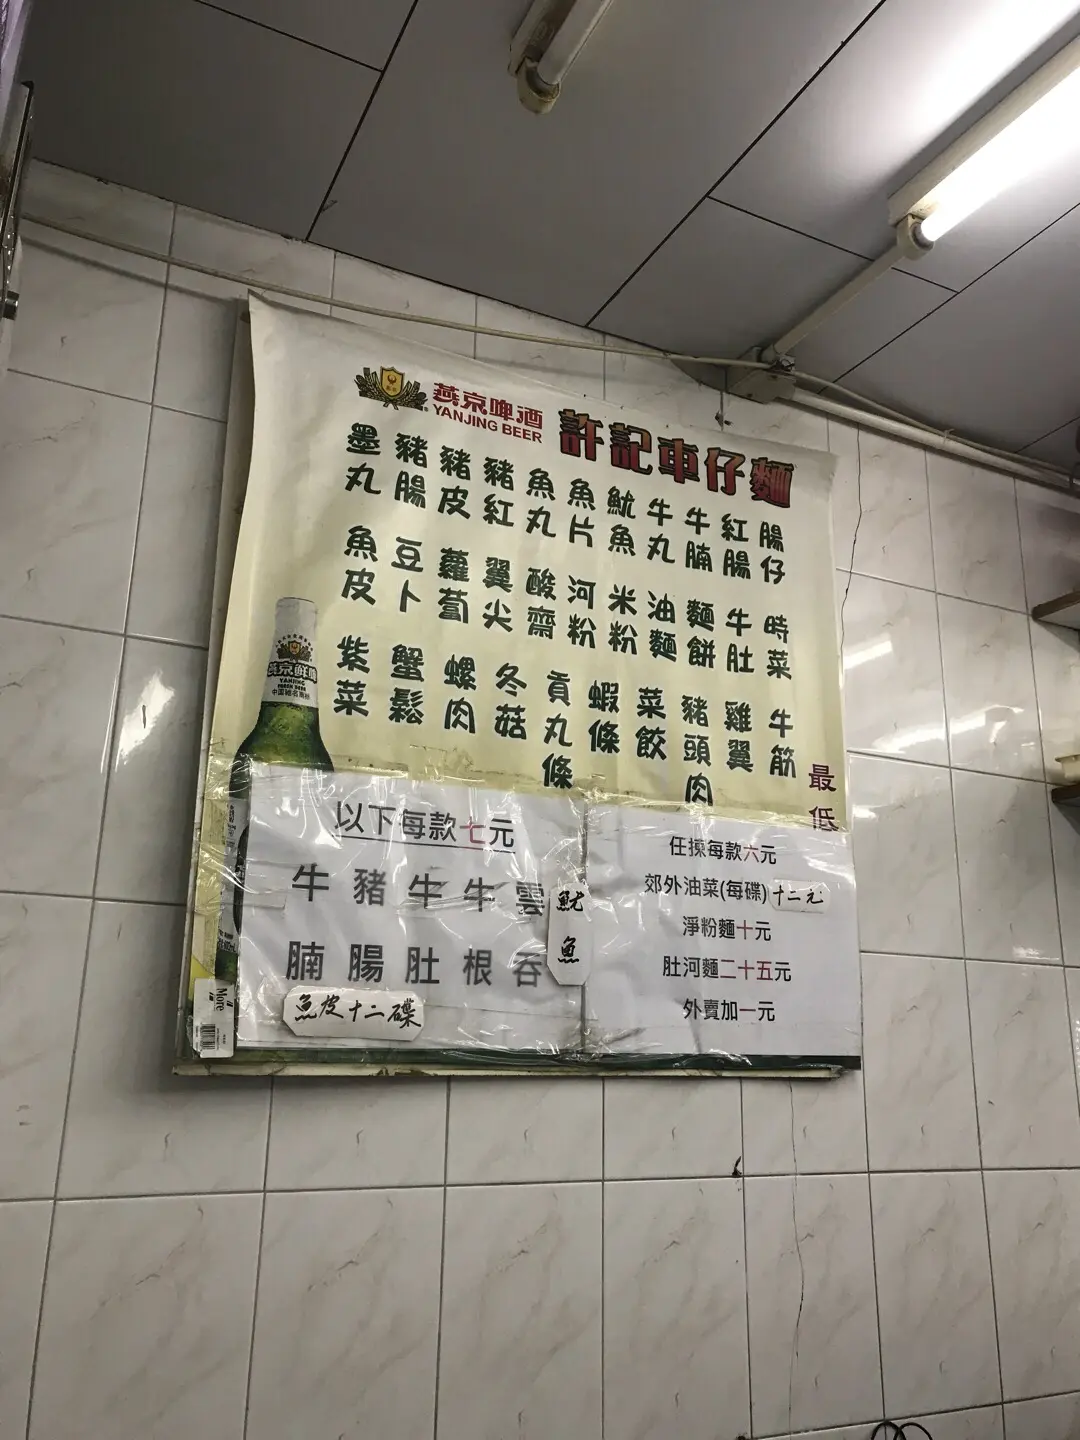 燕京啤酒
YANJING BEER
許記車仔麵
腸仔 紅腸 牛腩 牛丸 魷魚 魚片 魚丸 豬紅 豬皮 豬腸 墨丸
時菜 牛肚 麵餅 油麵 米粉 河粉 酸齋 翼尖 蘿蔔 豆卜 魚皮
牛筋 雞翼 豬頭肉 菜餃 蝦條 貢丸條 冬菇 螺肉 蟹鬆 紫菜
最低
燕京鮮啤
YANJING
以下每款七元
牛腩 豬腸 牛肚 牛根 雲吞 魷魚
魚皮十二碟
任揀每款六元
郊外油菜(每碟)十二元
淨粉麵十元
肚河麵二十五元
外賣加一元
"More"